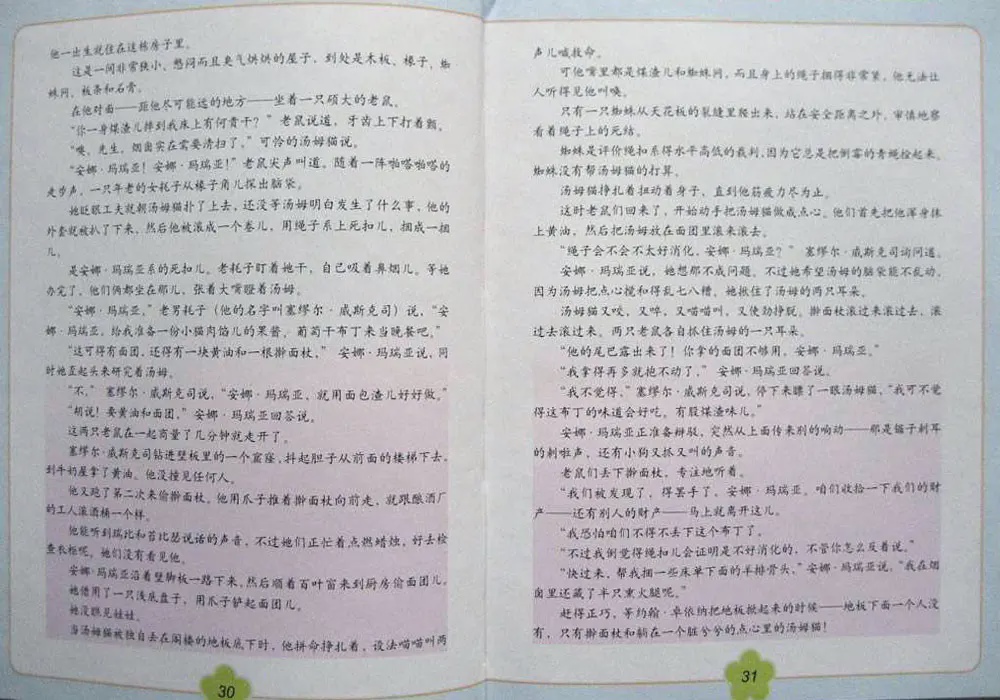 他一出生就住在这栋房子里。
这是一间非常狭小、憋闷而且臭气烘烘的屋子，到处是木板、椽子、蜘
蛛网、板条和石膏。
在他对面——距他尽可能远的地方——坐着一只硕大的老鼠。
“你一身煤渣儿掉到我床上有何贵干？”老鼠说道，牙齿上下打着颤。
“噢，先生，烟囱实在需要清扫了。”可怜的汤姆猫说。
“安娜·玛瑞亚！安娜·玛瑞亚！”老鼠尖声叫道。随着一阵啪嗒啪嗒的
走步声，一只年老的女耗子从椽子角儿探出脑袋。
她眨眼工夫就朝汤姆猫扑了上去，还没等汤姆明白发生了什么事，他的
外套就被扒了下来，然后他被滚成一个卷儿，用绳子系上死扣儿，捆成一捆
儿。
是安娜·玛瑞亚系的死扣儿。老耗子盯着她干，自己吸着鼻烟儿。等她
办完了，他们俩都坐在那儿，张着大嘴瞪着汤姆。
“安娜·玛瑞亚，”老男耗子（他的名字叫塞缪尔·威斯克司）说，“安
娜·玛瑞亚，给我准备一份小猫肉馅儿的果酱、葡萄干布丁来当晚餐吧。”
“这可得有面团，还得有一块黄油和一根擀面杖，”安娜·玛瑞亚说，同
时她歪起头来研究着汤姆。
“不，”塞缪尔·威斯克司说，“安娜·玛瑞亚，就用面包渣儿好好做。”
“胡说！要黄油和面团，”安娜·玛瑞亚回答说。
这两只老鼠在一起商量了几分钟就走开了。
塞缪尔·威斯克司钻进壁板里的一个窟窿，抖起胆子从前面的楼梯下去，
到牛奶屋拿了黄油。他没撞见任何人。
他又跑了第二次来偷擀面杖。他用爪子推着擀面杖向前走，就跟酿酒厂
的工人滚酒桶一个样。
他能听到瑞比和苔比瑟说话的声音，不过她们正忙着点燃蜡烛，好去检
查衣柜呢。她们没有看见他。
安娜·玛瑞亚沿着壁脚板一路下来，然后顺着百叶窗来到厨房偷面团儿。
她借用了一只浅底盘子，用爪子铲起面团儿。
她没瞧见娃娃。
当汤姆猫被独自丢在阁楼的地板底下时，他拼命挣扎着，设法喵喵叫两
30
声儿喊救命。
可他嘴里都是煤渣儿和蜘蛛网，而且身上的绳子捆得非常紧，他无法让
人听得见他叫唤。
只有一只蜘蛛从天花板的裂缝里爬出来，站在安全距离之外，审慎地察
看着绳子上的死结。
蜘蛛是评价绳扣系得水平高低的裁判，因为它总是把倒霉的青蝇捡起来。
蜘蛛没有帮汤姆猫的打算。
汤姆猫挣扎着扭动着身子，直到他筋疲力尽为止。
这时老鼠们回来了，开始动手把汤姆猫做成点心。他们首先把他浑身抹
上黄油，然后把汤姆放在面团里滚来滚去。
“绳子会不会不太好消化，安娜·玛瑞亚？”塞缪尔·威斯克司询问道。
安娜·玛瑞亚说，她想那不成问题。不过她希望汤姆的脑袋能不乱动，
因为汤姆把点心搅和得乱七八糟。她揪住了汤姆的两只耳朵。
汤姆猫又咬，又啐，又喵喵叫，又使劲挣脱。擀面杖滚过来滚过去，滚
过去滚过来。两只老鼠各自抓住汤姆的一只耳朵。
“他的尾巴露出来了！你拿的面团不够用，安娜·玛瑞亚。”
“我拿得再多就抱不动了，”安娜·玛瑞亚回答说。
“我不觉得，”塞缪尔·威斯克司说，停下来瞟了一眼汤姆猫，“我可不觉
得这布丁的味道会好吃。有股煤渣味儿。”
安娜·玛瑞亚正准备辩驳，突然从上面传来别的响动——那是锯子刺耳
的刺啦声，还有小狗又抓又叫的声音。
老鼠们丢下擀面杖，专注地听着。
“我们被发现了，得罢手了，安娜·玛瑞亚。咱们收拾一下我们的财
产——还有别人的财产——马上就离开这儿。
“我恐怕咱们不得不丢下这个布丁了。
“不过我倒觉得绳扣儿会证明是不好消化的，不管你怎么反着说。”
“快过来，帮我捆一些床单下面的羊排骨头，”安娜·玛瑞亚说，“我在烟
囱里还藏了半只熏火腿呢。”
赶得正巧，等约翰·卓依纳把地板掀起来的时候——地板下面一个人没
有，只有擀面杖和躺在一个脏兮兮的点心里的汤姆猫！
31